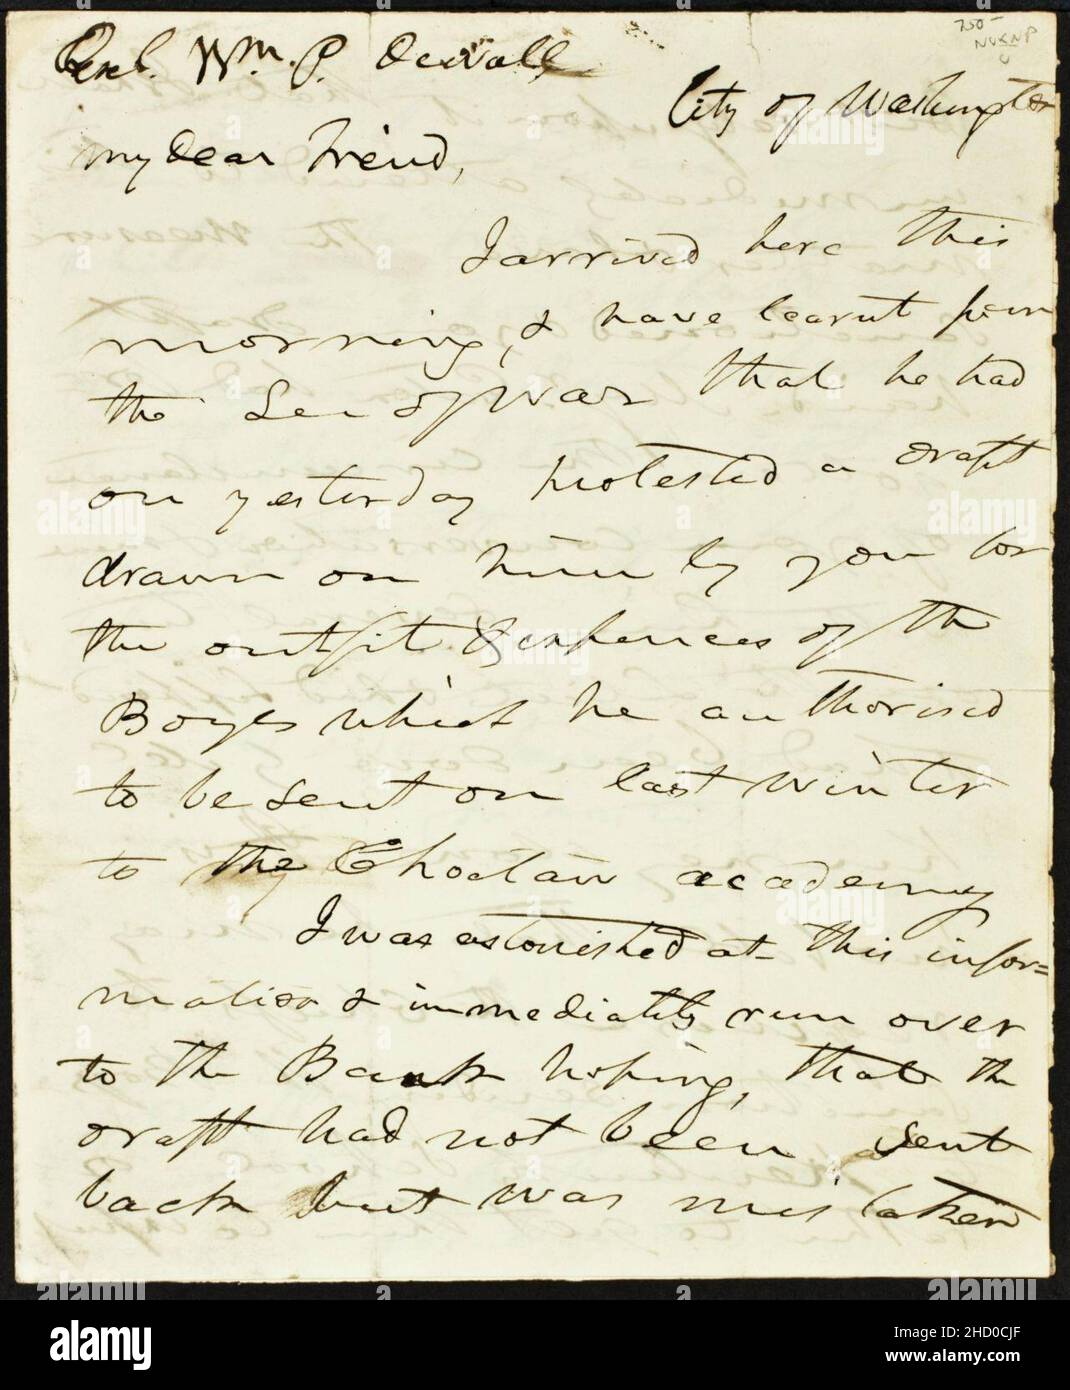 750-
Genl. Wm. P. Duvall
City of Washington
my dear Friend,
I arrived here this
morning, & have learnt from
the Sec of War that he had
on yesterday protested a draft
drawn on him by you for
the outfit & expences of the
Boyes which he authorised
to be sent on last winter
to the Choctaw academy
I was astonished at this infor=
mation & immediately run over
to the Bank hoping, that the
draft had not been sent
back but was mistaken
alamy
Image ID: 2HD0CJF
www.alamy.com